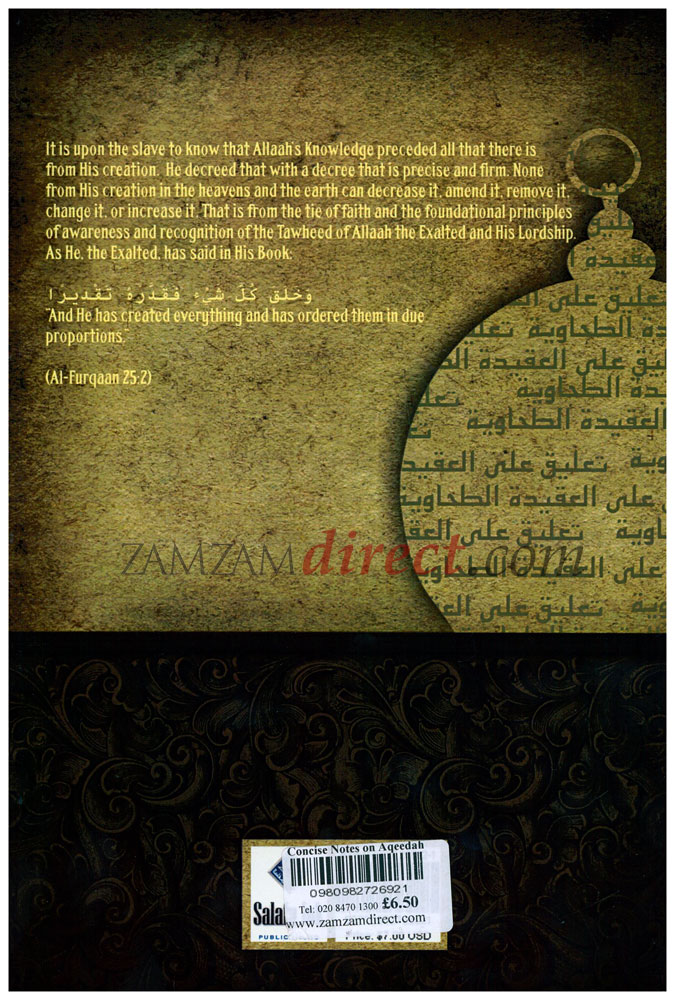 It is upon the slave to know that Allaah's Knowledge preceded all that there is
from His creation. He decreed that with a decree that is precise and firm. None
from His creation in the heavens and the earth can decrease it, amend it, remove it,
change it, or increase it. That is from the tie of faith and the foundational principles
of awareness and recognition of the Tawheed of Allaah the Exalted and His Lordship.
As He, the Exalted, has said in His Book:
وَخَلَقَ كُلَّ شَيْءٍ فَقَدَّرَهُ تَقْدِيرًا
"And He has created everything and has ordered them in due
proportions."
(Al-Furqaan 25:2)
تعليق
العقيدة
تعليق على
الطحاوية تعليق
تعليق على العقيدة
العقيدة الطحاوية
العقيدة الطحاوية
تعليق على
على العقيدة الطحاوية
الطحاوية تعليق على
العقيدة الطحاوية
تعليق على
ZAMZAMdirect.com
Concise Notes on Aqeedah
0980982726921
Tel: 020 8470 1300 £6.50
www.zamzamdirect.com
Price: $7.00 USD